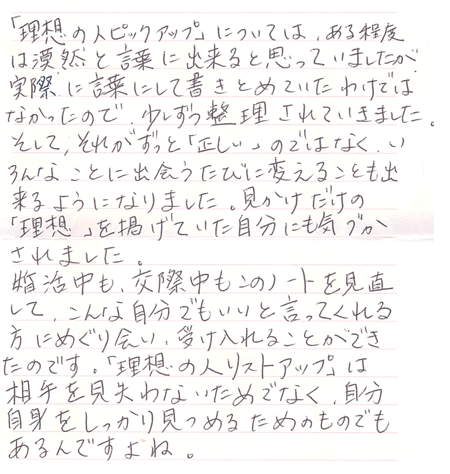 「理想の人ピックアップ」については、ある程度
は漠然と言葉に出来ると思っていましたが
実際に言葉にして書きとめていたわけでは
なかったので、少しずつ整理されていきました。
そして、それがずっと「正しい」のではなく、い
ろんなことに出会うたびに変えることも出
来るようになりました。見かけだけの
「理想」を掲げていた自分にも気づか
されました。
婚活中も、交際中もこのノートを見直
して、こんな自分でもいいと言ってくれる
方にめぐり会い、受け入れることができ
たのです。「理想の人リストアップ」は
相手を見失わないためでなく、自分
自身をしっかり見つめるためのものでも
あるんですよね。